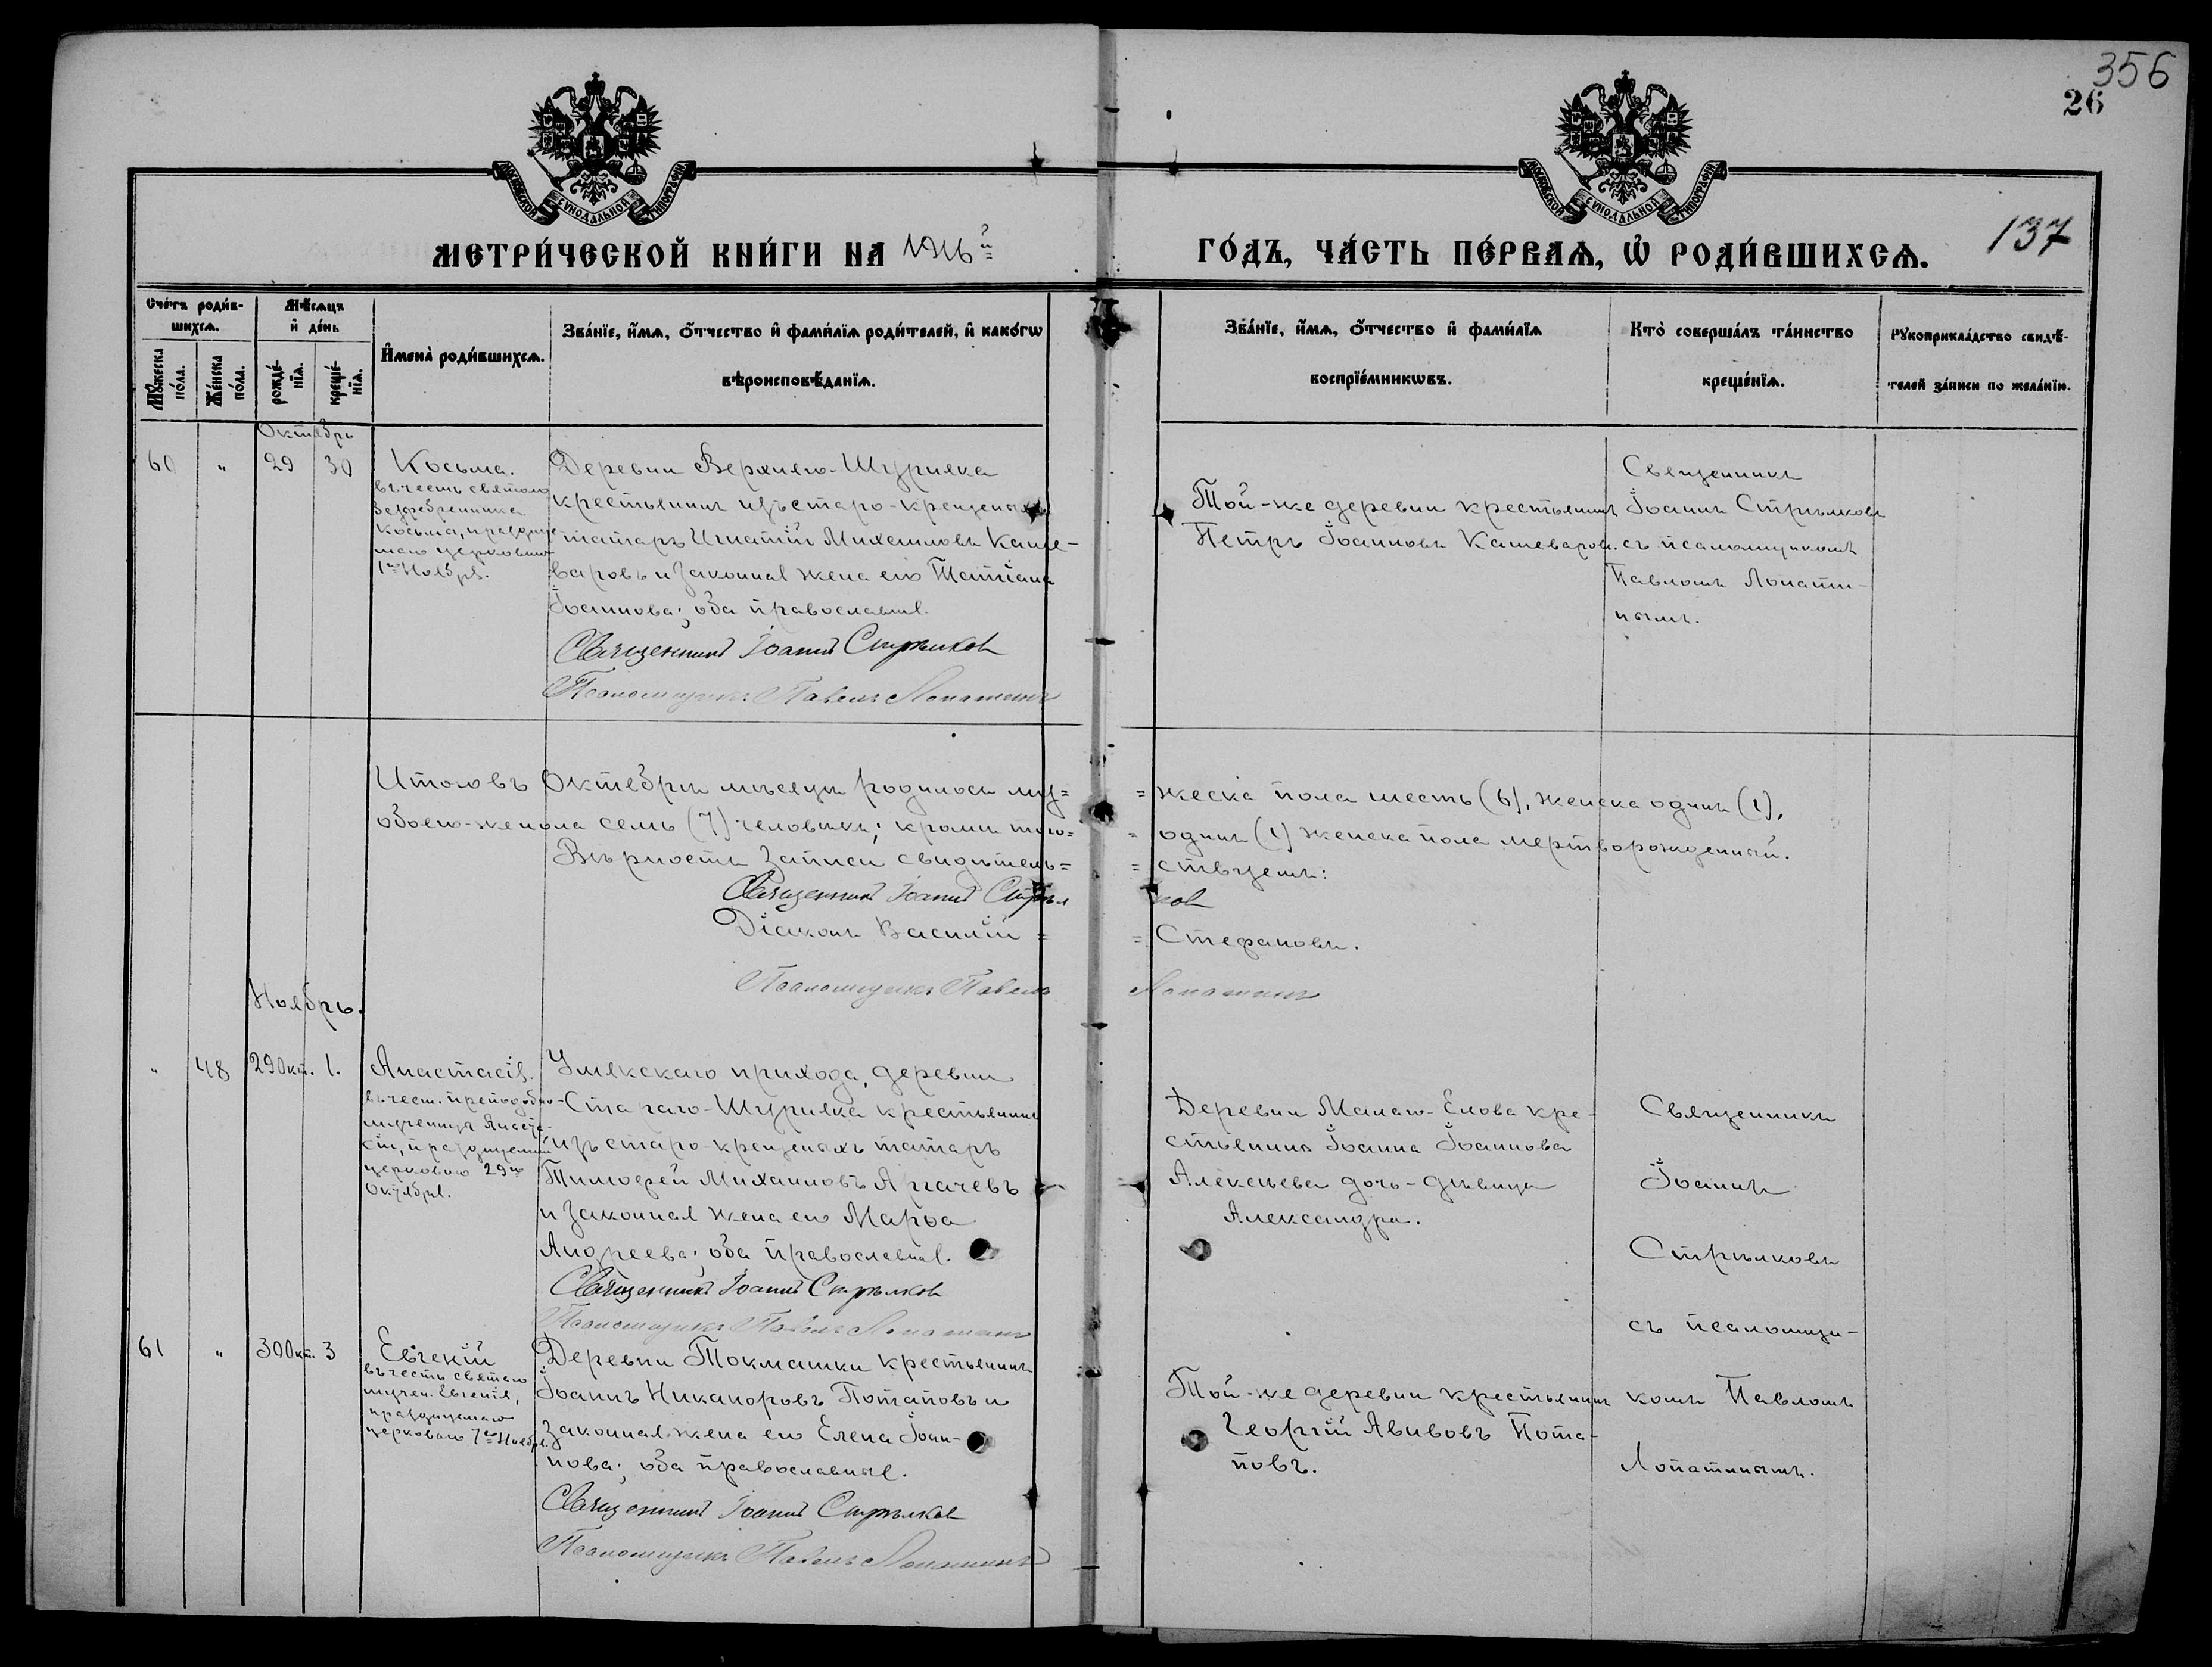 356
26
137
МОСКОВСКОЙ СУНОДАЛЬНОЙ ТИПОГРАФІИ
МОСКОВСКОЙ СУНОДАЛЬНОЙ ТИПОГРАФІИ
МЕТРИ́ЧЕСКОЙ КНИ́ГИ НА 1916й
ГО́ДЪ, ЧА́СТЬ ПЕ́РВАѦ, Ѡ҆ РОДИ́ВШИХСѦ.
Сче́тъ роди́в-
шихсѧ.
Мꙋ́жеска по́ла.
Же́нска по́ла.
Мѣ́сѧцъ
и҆ де́нь
рожде́-
нїѧ.
креще́-
нїѧ.
И҆мена̀ роди́вшихсѧ.
Зва́нїе, и҆́мѧ, ѻ҆́тчество и҆ фами́лїѧ роди́телей, и҆ како́гѡ
вѣроисповѣ́данїѧ.
Зва́нїе, и҆́мѧ, ѻ҆́тчество и҆ фами́лїѧ
воспрїе́мникѡвъ.
Кто̀ соверша́лъ та́инство
креще́нїѧ.
Рꙋкоприкла́дство свидѣ́-
телей за́писи по жела́нїю.
Октябрь
60 " 29 30
Косьма.
въ честь святого
безсребренника
Косьмы, празднуе-
маго церковью
1го Ноября.
Деревни Верхняго-Шурняка
крестьянинъ изъ старо-крещеныхъ
татаръ Игнатій Михаиловъ Каше-
варовъ и законная жена его Татіана
Іоаннова; оба православные.
Священникъ Іоаннъ Стрѣлковъ
Псаломщикъ Павелъ Лопатинъ
Той-же деревни крестьянинъ
Петръ Іоанновъ Кашеваровъ.
Священникъ
Іоаннъ Стрѣлковъ
съ псаломщикомъ
Павломъ Лопати-
нымъ.
Итого въ Октябрѣ мѣсяцѣ родилось му= =жеска пола шесть (6), женска одинъ (1),
обоего-же пола семь (7) человѣкъ; кромѣ того= =одинъ (1) женска пола мертворожденный.
Вѣрность записи свидѣтель= =ствуемъ:
Священникъ Іоаннъ Стрѣлковъ
Діаконъ Василій = =Стефановъ.
Псаломщикъ Павелъ Лопатинъ
Ноябрь.
" 48 29 Окт. 1.
Анастасія.
въ чест. преподобно-
мученицы Анаста-
сіи, празднуемой
церковью 29го
Октября.
Умякскаго прихода, деревни
Стараго-Шурняка крестьянинъ
изъ старо-крещеныхъ татаръ
Тимофей Михаиловъ
и законная жена его Марѳа
Андреева; оба православные.
Священникъ Іоаннъ Стрѣлковъ
Псаломщикъ Павелъ Лопатинъ
Деревни кре-
стьянина Іоанна Іоаннова
Алексѣева дочь-дѣвица
Александра.
Священникъ
Іоаннъ
Стрѣлковъ
съ псаломщи-
комъ Павломъ
Лопатинымъ.
61 " 30 Окт. 3
Евгеній
въ честь святаго
мучен. Евгенія,
празднуемаго
церковью 7го Ноября.
Деревни Токмашки крестьянинъ
Іоаннъ Никаноровъ Потаповъ и
законная жена его Елена Іоан-
нова; оба православные.
Священникъ Іоаннъ Стрѣлковъ
Псаломщикъ Павелъ Лопатинъ
Той-же деревни крестьянинъ
Георгій Авивовъ Пота-
повъ.